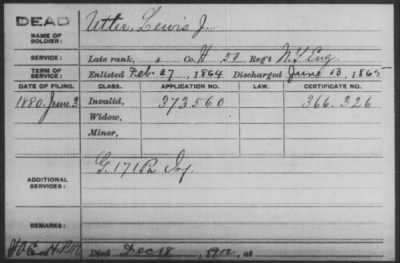 DEAD
NAME OF SOLDIER: Utter, Lewis J.
SERVICE: Late rank, " Co. H 50 Reg't N.Y. Eng.
TERM OF SERVICE: Enlisted Feb. 27, 1864 Discharged June 13, 1865
DATE OF FILING. CLASS. APPLICATION NO. LAW. CERTIFICATE NO.
1880. June 3 Invalid, 373560 366.326
Widow,
Minor,
ADDITIONAL SERVICES: G. 171 Pa Inf.
REMARKS:
Died Dec 18, 1912, at